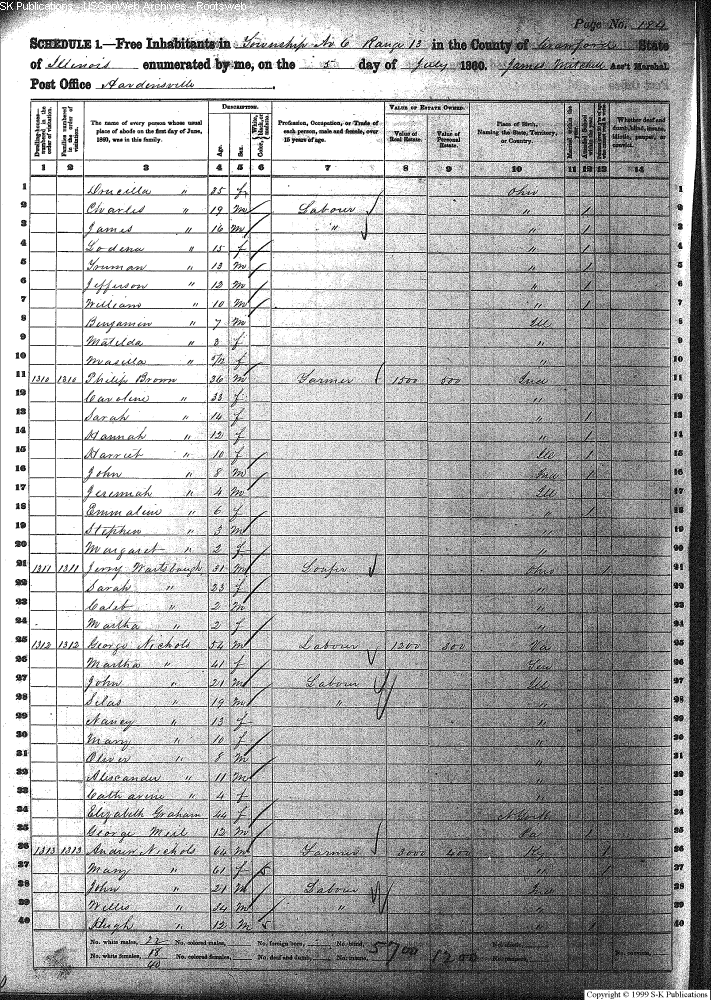 SK Publications - USGenWeb Archives - Rootsweb
Page No. 184
SCHEDULE 1.—Free Inhabitants in Township No 6 Range 13 in the County of Crawford State
of Illinois enumerated by me, on the 5 day of July 1860. James Mitchell Ass't Marshal.
Post Office Hardensville
Dwelling-houses—numbered in the order of visitation. Families numbered in the order of visitation. The name of every person whose usual place of abode on the first day of June, 1860, was in this family. DESCRIPTION. Age. Sex. Color, White, black, or mulatto. Profession, Occupation, or Trade of each person, male and female, over 15 years of age. VALUE OF ESTATE OWNED. Value of Real Estate. Value of Personal Estate. Place of Birth, Naming the State, Territory, or Country. Married within the year. Attended School within the year. Whether deaf and dumb, blind, insane, idiotic, pauper, or convict.
1 2 3 4 5 6 7 8 9 10 11 12 13 14
1 Drucilla " 35 f Ohio 1
2 Charles " 19 m Labourer " 1 2
3 James " 16 m " " 1 3
4 Lodena " 15 f " 1 4
5 Truman " 13 m " 1 5
6 Jefferson " 12 m " 1 6
7 William " 10 m " 1 7
8 Benjamin " 7 m Ill 8
9 Matilda " 3 f " 9
10 " f " 10
11 1310 1310 Philip Brown 36 m Farmer 1500 500 Ind 11
12 Caroline " 33 f " 12
13 Sarah " 14 f " 1 13
14 Hannah " 12 f " 1 14
15 Harriet " 10 f Ill 1 15
16 John " 8 m Ind 1 16
17 Jeremiah " 4 m Ill 17
18 Emmaline " 6 f " 1 18
19 Stephen " 3 m " 19
20 Margaret " 2 f " 20
21 1311 1311 Jerry Wartsbaugh 31 m Ohio 21
22 Sarah " 23 f " 22
23 Caleb " 2 m " 23
24 Martha " 2 f " 24
25 1312 1312 George Nichols 54 m Labour 1200 300 Va 25
26 Martha " 41 f Ten 26
27 John " 21 m Labour Ill 27
28 Silas " 19 m " " 28
29 Nancy " 13 f " 29
30 Mary " 10 f " 30
31 Oliver " 8 m " 31
32 Alexcander " 11 m " 32
33 Catharine " 4 f " 33
34 Elizabeth Graham 44 f 34
35 George 12 m Pa 1 35
36 1313 1313 Andrew Nichols 64 m Farmer 3000 400 Ky 1 36
37 Mary " 61 f " 1 37
38 John " 21 m Labour 38
39 Willis " 24 m " " 39
40 Hugh " 12 m " 40
No. white males, 22 No. colored males, No. foreign born, No. blind, 5700 1200 No. idiotic,
No. white females, 18 No. colored females, No. deaf and dumb, No. insane, No. paupers, No. convicts,
40
Copyright © 1999 S-K Publications